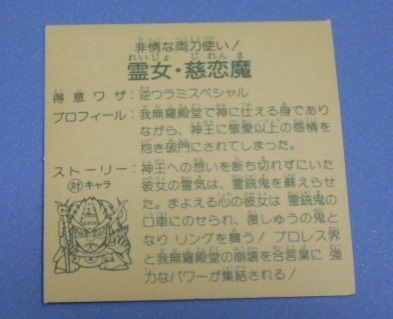 非情な両刀使い!
霊女・慈恋魔
れいじょ じれんま
得意ワザ:逆ウラミスペシャル
プロフィール:我無羅殿堂で神に仕える身であり
ながら、神王に敬愛以上の感情を
抱き破門にされてしまった。
ストーリー:神王への想いを断ち切れずにいた
対キャラ
彼女の霊気は、霊銃鬼を蘇えらせ
た。まよえる心の彼女は霊銃鬼の
口車にのせられ、復しゅうの鬼と
なりリングを襲う!プロレス界
と我無羅殿堂の崩壊を合言葉に強
力なパワーが集結される!